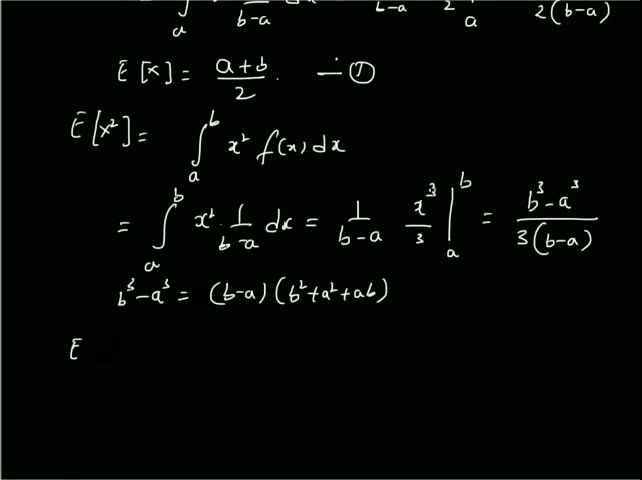 ∫ₐ b-a b-a 2 a 2(b-a)
E[x] = (a+b)/2. —①
E[x²] = ∫ₐᵇ x² f(x) dx
= ∫ₐᵇ x² · 1/(b-a) dx = 1/(b-a) x³/3 |ₐᵇ = (b³-a³)/(3(b-a))
b³-a³ = (b-a)(b²+a²+ab)
E